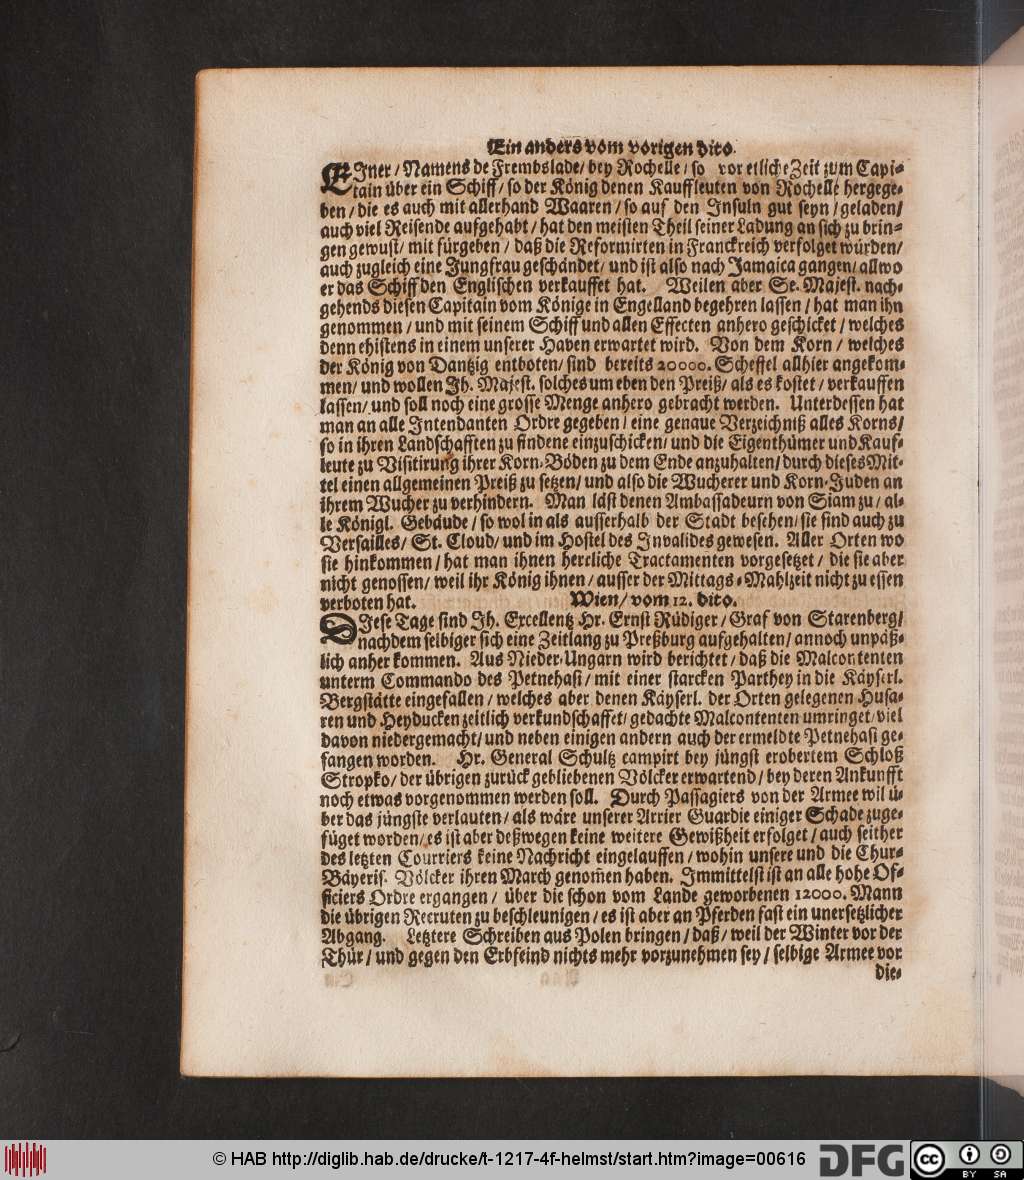 Ein anders vom vorigen dito.
EIner / Namens de Frembslade / bey Rochelle / so vor etliche Zeit zum Capi-
tain über ein Schiff / so der König denen Kauffleuten von Rochelle hergege-
ben / die es auch mit allerhand Waaren / so auf den Insuln gut seyn / geladen /
auch viel Reisende aufgehabt / hat den meisten Theil seiner Ladung an sich zu brin-
gen gewust / mit fürgeben / daß die Reformirten in Franckreich verfolget würden /
auch zugleich eine Jungfrau geschändet / und ist also nach Jamaica gangen / allwo
er das Schiff den Englischen verkauffet hat. Weilen aber Se. Majest. nach-
gehends diesen Capitain vom Könige in Engelland begehren lassen / hat man ihn
genommen / und mit seinem Schiff und allen Effecten anhero geschicket / welches
denn ehistens in einem unserer Haven erwartet wird. Von dem Korn / welches
der König von Dantzig entboten / sind bereits 20000. Scheffel allhier angekom-
men / und wollen Ih. Majest. solches um eben den Preiß / als es kostet / verkauffen
lassen / und soll noch eine grosse Menge anhero gebracht werden. Unterdessen hat
man an alle Intendanten Ordre gegeben / eine genaue Verzeichniß alles Korns /
so in ihren Landschafften zu findene einzuschicken / und die Eigenthümer und Kauf-
leute zu Visitirung ihrer Korn-Böden zu dem Ende anzuhalten / durch dieses Mit-
tel einen allgemeinen Preiß zu setzen / und also die Wucherer und Korn-Juden an
ihrem Wucher zu verhindern. Man läst denen Ambassadeurn von Siam zu / al-
le Königl. Gebäude / so wol in als ausserhalb der Stadt besehen / sie sind auch zu
Versailles / St. Cloud / und im Hostel des Invalides gewesen. Aller Orten wo
sie hinkommen / hat man ihnen herrliche Tractamenten vorgesetzet / die sie aber
nicht genossen / weil ihr König ihnen / ausser der Mittags-Mahlzeit nicht zu essen
verboten hat. Wien / vom 12. dito.
DIese Tage sind Ih. Excellentz Hr. Ernst Rüdiger / Graf von Starenberg /
nachdem selbiger sich eine Zeitlang zu Preßburg aufgehalten / annoch unpäß-
lich anher kommen. Aus Nieder-Ungarn wird berichtet / daß die Malcontenten
unterm Commando des Petnehasi / mit einer starcken Parthey in die Käyserl.
Bergstätte eingefallen / welches aber denen Käyserl. der Orten gelegenen Husa-
ren und Heyducken zeitlich verkundschaffet / gedachte Malcontenten umringet / viel
davon niedergemacht / und neben einigen andern auch der ermeldte Petnehasi ge-
fangen worden. Hr. General Schultz campirt bey jüngst erobertem Schloß
Stropko / der übrigen zurück gebliebenen Völcker erwartend / bey deren Ankunfft
noch etwas vorgenommen werden soll. Durch Passagiers von der Armee wil ü-
ber das jüngste verlauten / als wäre unserer Arrier Guardie einiger Schade zuge-
füget worden / es ist aber deßwegen keine weitere Gewißheit erfolget / auch seither
des letzten Courriers keine Nachricht eingelauffen / wohin unsere und die Chur-
Bäyeris. Völcker ihren March genom̃en haben. Immittelst ist an alle hohe Of-
ficiers Ordre ergangen / über die schon vom Lande geworbenen 12000. Mann
die übrigen Recruten zu beschleunigen / es ist aber an Pferden fast ein unersetzlicher
Abgang. Letztere Schreiben aus Polen bringen / daß / weil der Winter vor der
Thür / und gegen den Erbfeind nichts mehr vorzunehmen sey / selbige Armee vor
die-
© HAB http://diglib.hab.de/drucke/t-1217-4f-helmst/start.htm?image=00616
DFG
cc
BY SA